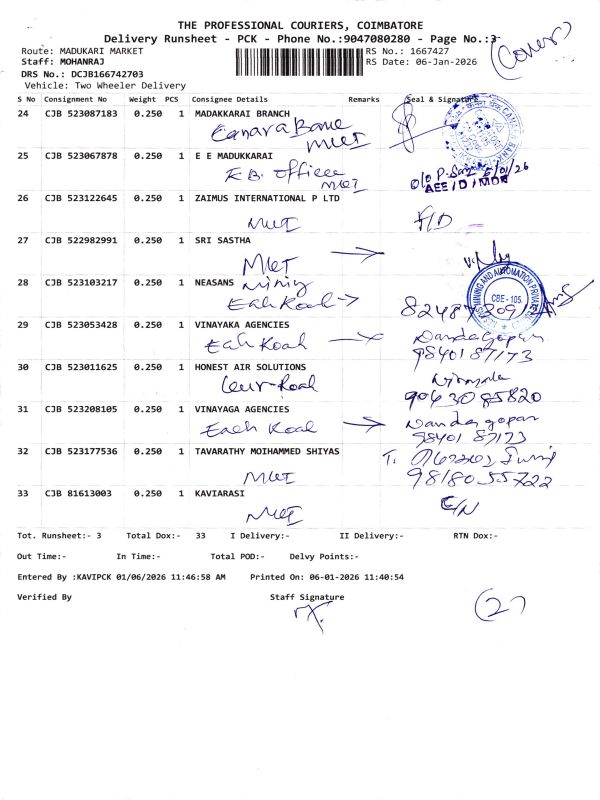 THE PROFESSIONAL COURIERS, COIMBATORE
Delivery Runsheet - PCK - Phone No.:9047080280 - Page No.:3
(Cover)
Route: MADUKARI MARKET
RS No.: 1667427
Staff: MOHANRAJ
RS Date: 06-Jan-2026
DRS No.: DCJB166742703
Vehicle: Two Wheeler Delivery
S No Consignment No Weight PCS Consignee Details Remarks Seal & Signature
24 CJB 523087183 0.250 1 MADAKKARAI BRANCH
Canara Bank
MKT
25 CJB 523067878 0.250 1 E E MADUKKARAI
E.B. Office
MKT
AEE / D / MDK
26 CJB 523122645 0.250 1 ZAIMUS INTERNATIONAL P LTD
MKT
27 CJB 522982991 0.250 1 SRI SASTHA
MKT
28 CJB 523103217 0.250 1 NEASANS
MINING AND AUTOMATION PRIVATE
CBE - 105.
29 CJB 523053428 0.250 1 VINAYAKA AGENCIES
Nandagopan
98401 87173
30 CJB 523011625 0.250 1 HONEST AIR SOLUTIONS
Nirmala
90630 85820
31 CJB 523208105 0.250 1 VINAYAGA AGENCIES
Nandagopan
98401 87173
32 CJB 523177536 0.250 1 TAVARATHY MOIHAMMED SHIYAS
MKT
98180 55722
33 CJB 81613003 0.250 1 KAVIARASI
MKT
C/N
Tot. Runsheet:- 3 Total Dox:- 33 I Delivery:- II Delivery:- RTN Dox:-
Out Time:- In Time:- Total POD:- Delvy Points:-
Entered By :KAVIPCK 01/06/2026 11:46:58 AM Printed On: 06-01-2026 11:40:54
Verified By Staff Signature
(27)